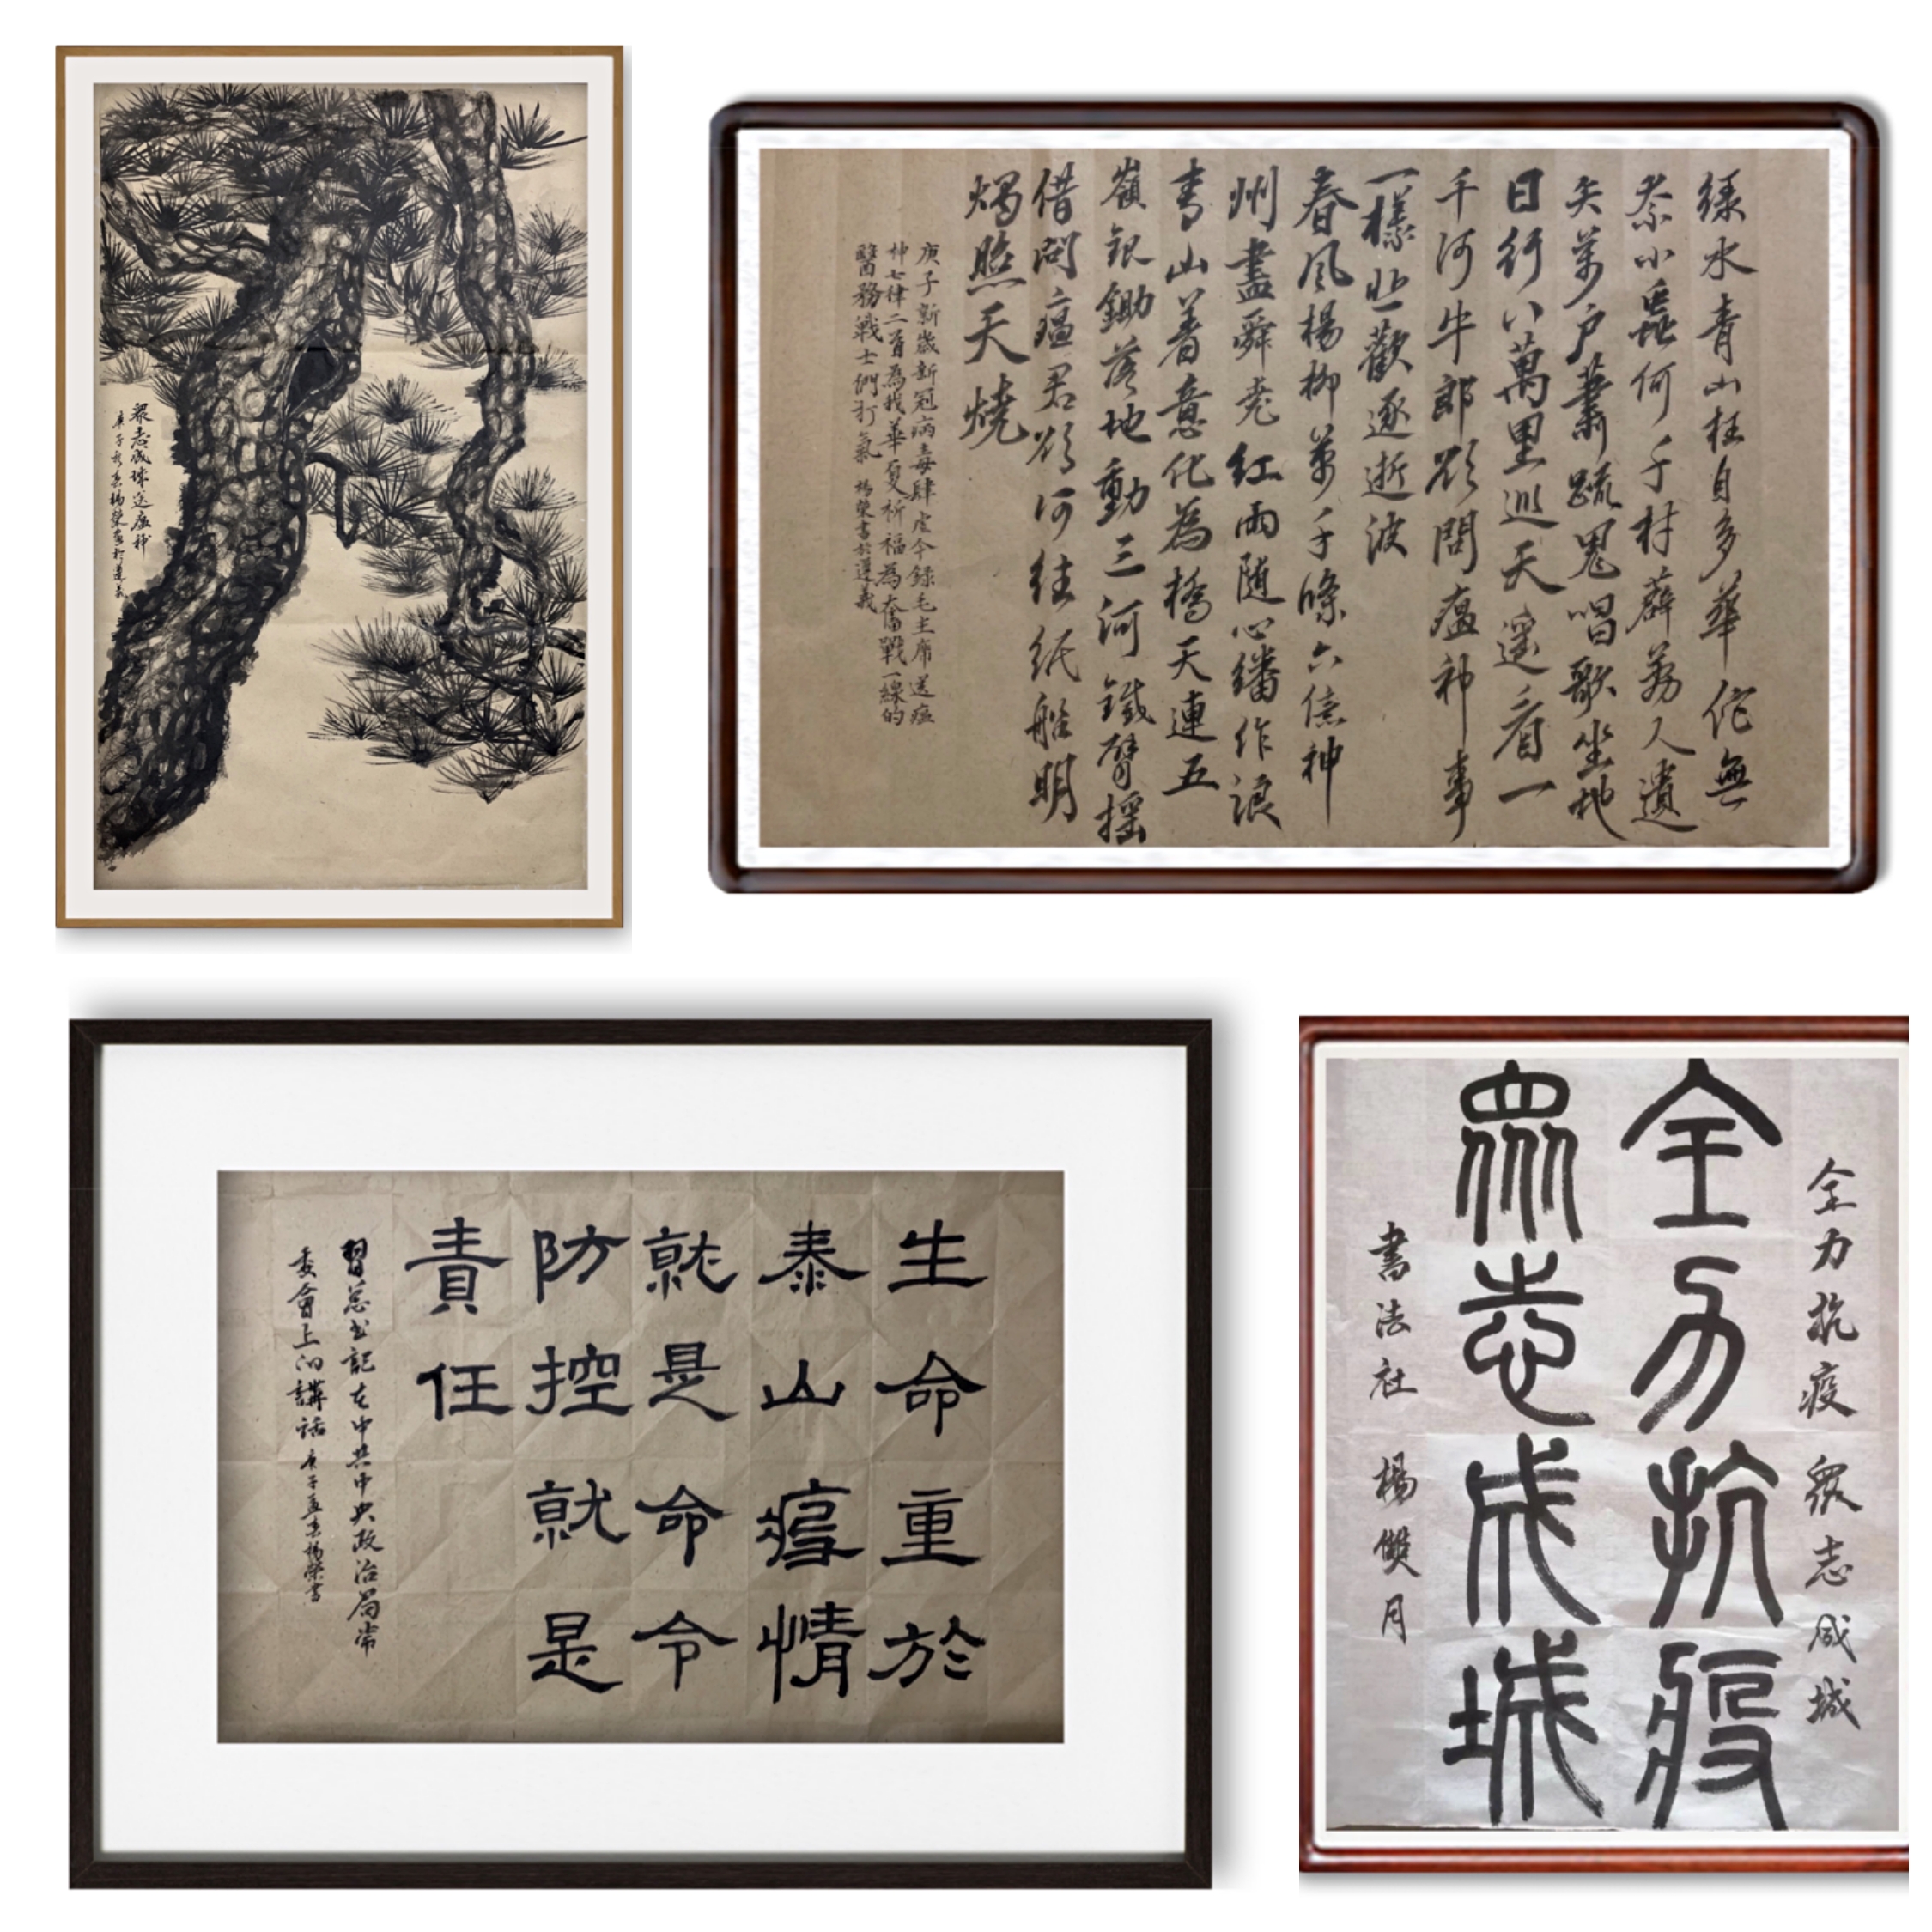 眾志成城送瘟神
庚子新春楊榮畫於遵義
綠水青山枉自多華佗無
奈小蟲何千村薜荔人遺
矢萬户蕭疏鬼唱歌坐地
日行八萬里巡天遥看一
千河牛郎欲問瘟神事
一樣悲歡逐逝波
春風楊柳萬千條六億神
州盡舜堯紅雨随心繙作浪
青山着意化為橋天連五
嶺銀鋤落地動三河鐵臂摇
借問瘟君欲何往纸船明
燭照天燒
庚子新歲新冠病毒肆虐今録毛主席送瘟
神七律二首為我華夏祈福為奮戰一線的
醫務戰士們打氣 楊榮書於遵義
生命重於
泰山疫情
就是命令
防控就是
責任
習總书記在中共中央政治局常
委會上的講話 庚子孟春楊榮書
全力抗疫 眾志成城
全力抗疫
眾志成城
書法社 楊雙月